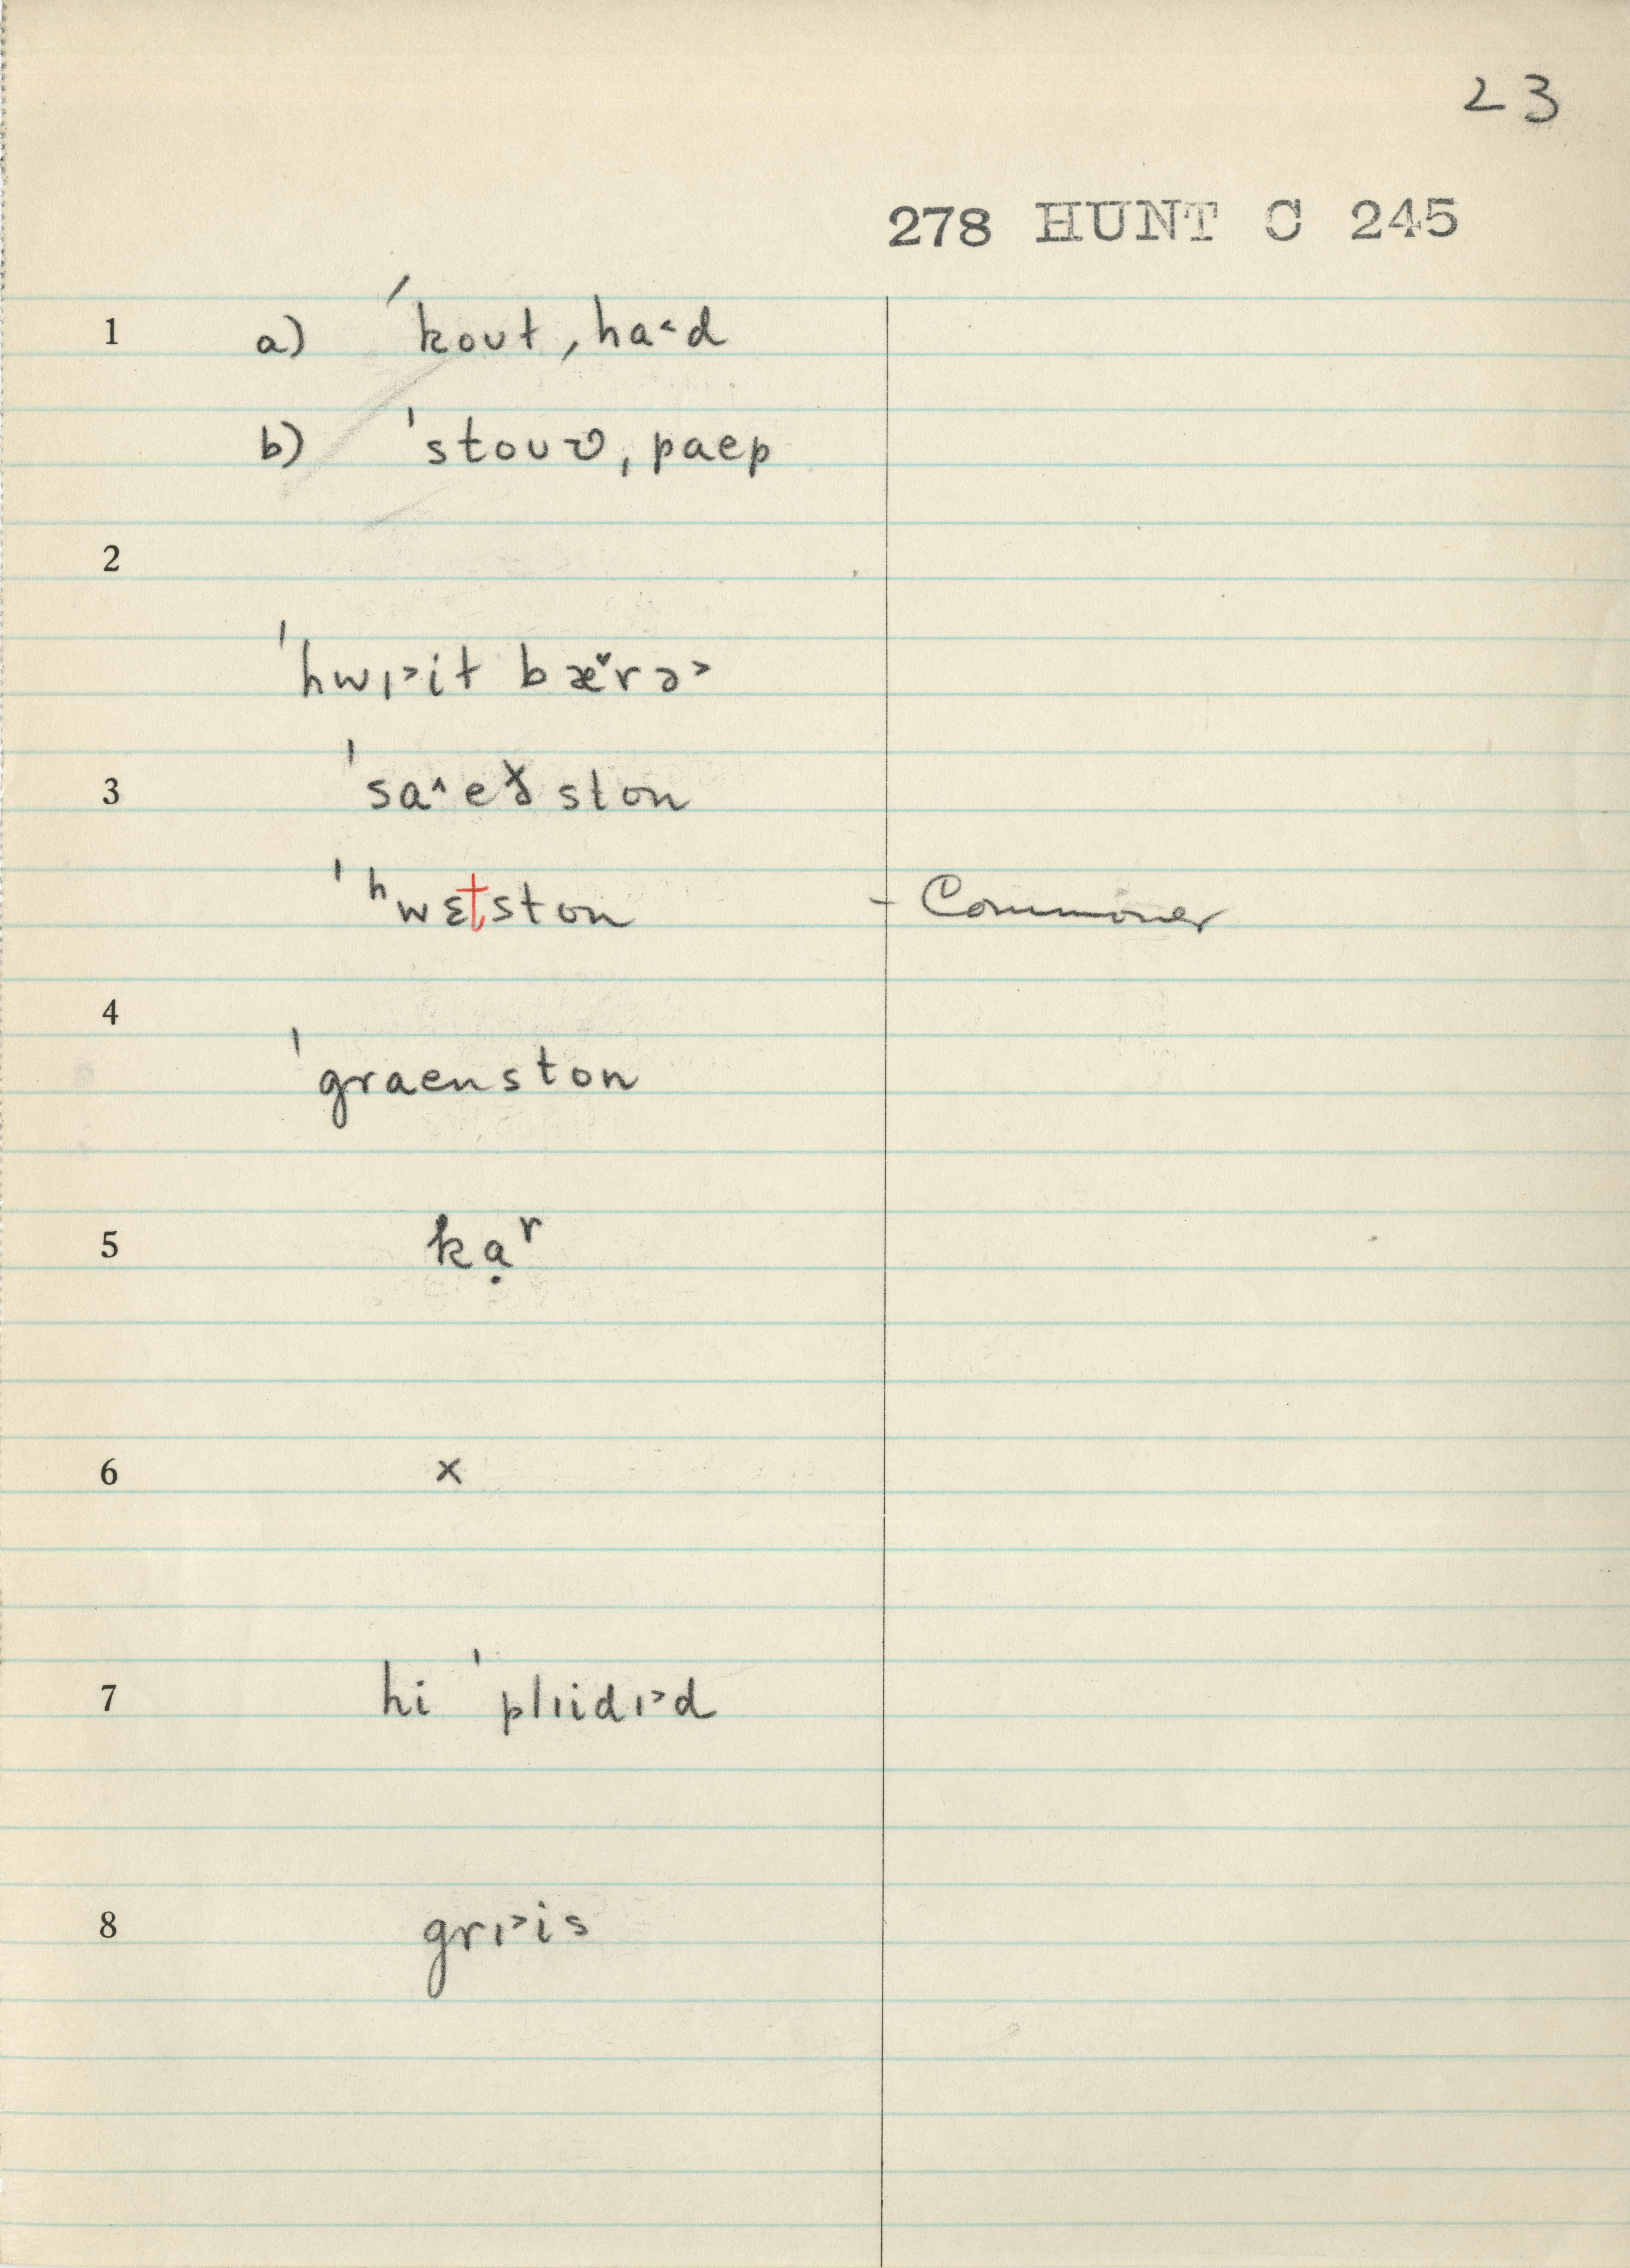 23
278 HUNT C 245
1 a) ˈkoʊt, ha˂d
b) ˈstoʊʋ, paep
2
ˈhwɪ˃it bæ̌rə˃
3 ˈsa˄eɤ̆ston
ˈʰwɛtston - Commoner
4
ˈgraenston
5 kạʳ
6 x
7 hi ˈplɪidɪ˃d
8 grɪ˃is